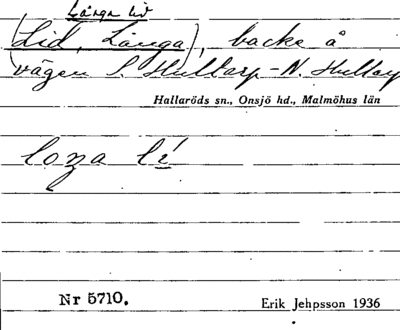 Långa lid
(Lid, Långa), backe å
vägen S. Hultarp - N. Hultarp
Hallaröds sn., Onsjö hd., Malmöhus län
loŋa lí
Nr 5710.
Erik Jehpsson 1936